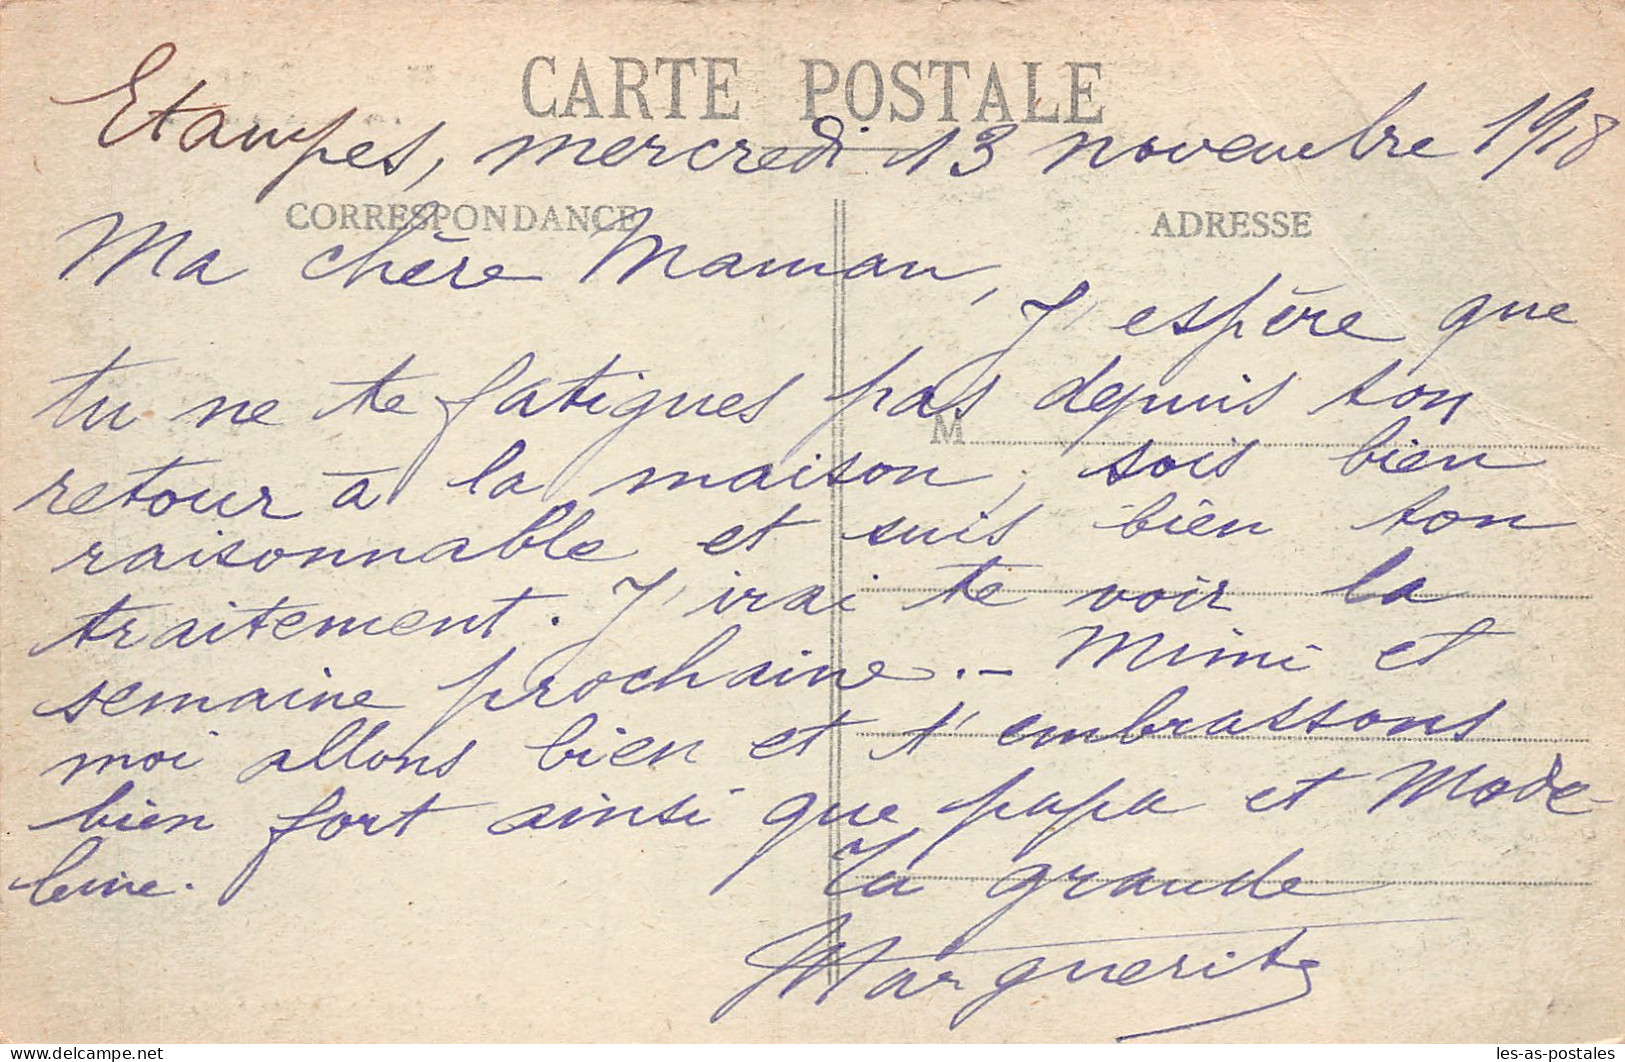 CARTE POSTALE
Etampes, mercredi 13 novembre 1918
CORRESPONDANCE
ADRESSE
Ma chère Maman,
J'espère que
tu ne te fatigues pas depuis ton
M
retour à la maison, sois bien
raisonnable et suis bien ton
traitement. J'irai te voir la
semaine prochaine. - Mimi et
moi allons bien et t'embrassons
bien fort ainsi que papa et Made-
leine.
Ta grande
Marguerite
les-as-postales
delcampe.net